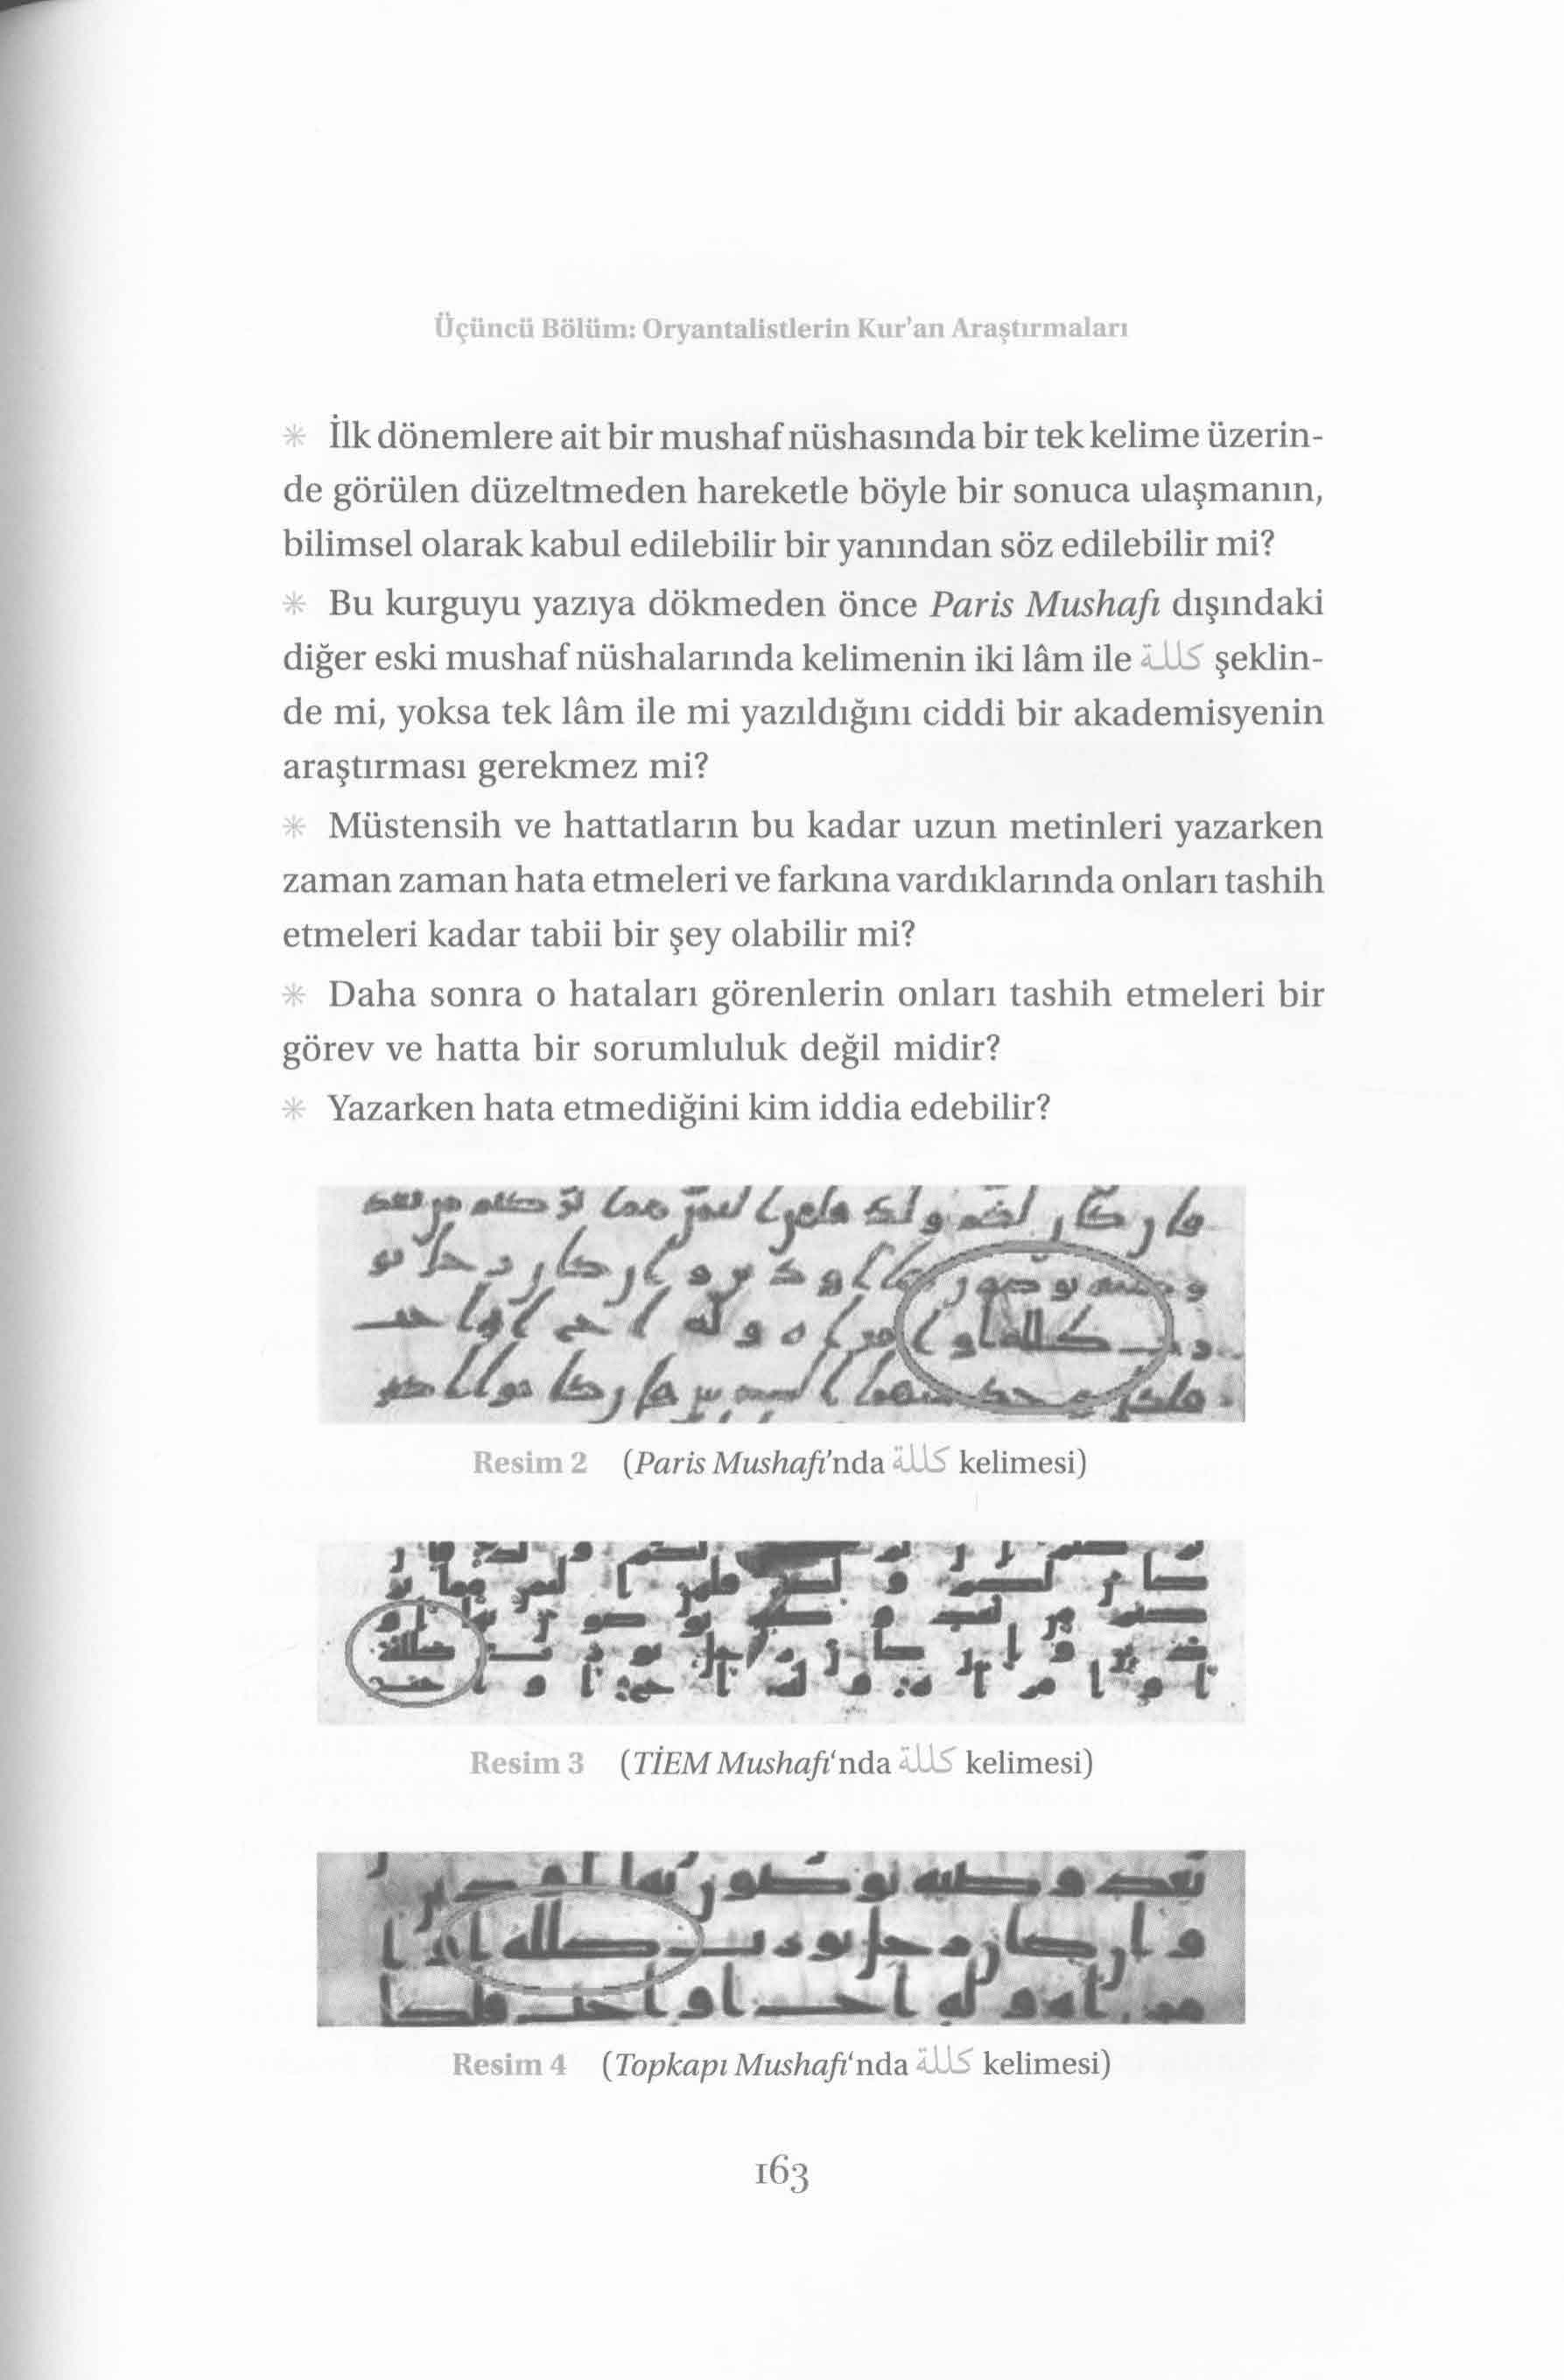 Üçüncü Bölüm: Oryantalistlerin Kur'an Araştırmaları
* İlk dönemlere ait bir mushaf nüshasında bir tek kelime üzerin-
de görülen düzeltmeden hareketle böyle bir sonuca ulaşmanın,
bilimsel olarak kabul edilebilir bir yanından söz edilebilir mi?
* Bu kurguyu yazıya dökmeden önce Paris Mushafı dışındaki
diğer eski mushaf nüshalarında kelimenin iki lâm ile كللة şeklin-
de mi, yoksa tek lâm ile mi yazıldığını ciddi bir akademisyenin
araştırması gerekmez mi?
* Müstensih ve hattatların bu kadar uzun metinleri yazarken
zaman zaman hata etmeleri ve farkına vardıklarında onları tashih
etmeleri kadar tabii bir şey olabilir mi?
* Daha sonra o hataları görenlerin onları tashih etmeleri bir
görev ve hatta bir sorumluluk değil midir?
* Yazarken hata etmediğini kim iddia edebilir?
Resim 2 (Paris Mushafı'nda كللة kelimesi)
Resim 3 (TİEM Mushafı'nda كللة kelimesi)
Resim 4 (Topkapı Mushafı'nda كللة kelimesi)
163